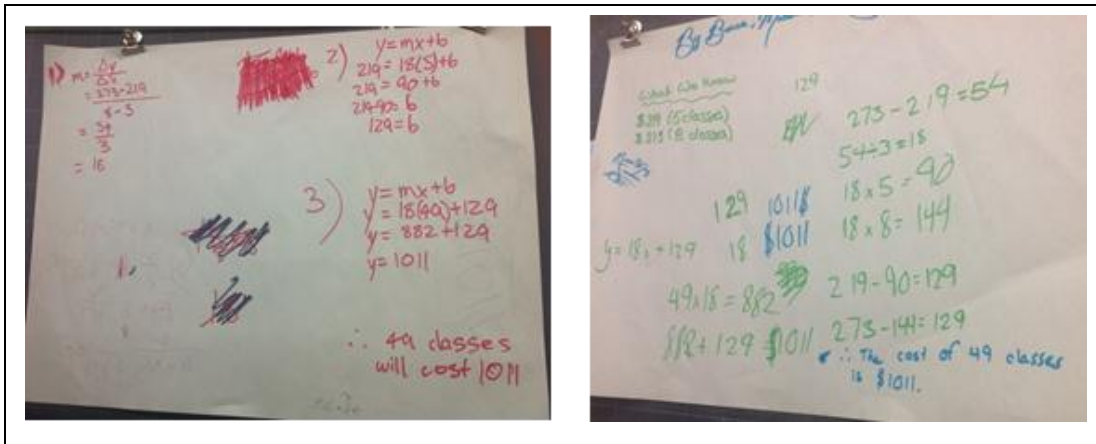 1) m = Δy
Δx
= 273-219
8-5
= 54
3
= 18
2) y = mx+b
219 = 18(5)+b
219 = 90+b
219-90 = b
129 = b
3) y = mx+b
y = 18(49)+129
y = 882+129
y = 1011
∴ 49 classes
will cost 1011
By
What We Know
$219 (5 classes)
$273 (8 classes)
129
273-219=54
54÷3=18
18x5=90
18x8=144
129 1011$
18 $1011
y=18x+129
49x18=882
219-90=129
882+129 $1011
273-144=129
∴ The cost of 49 classes
is $1011.